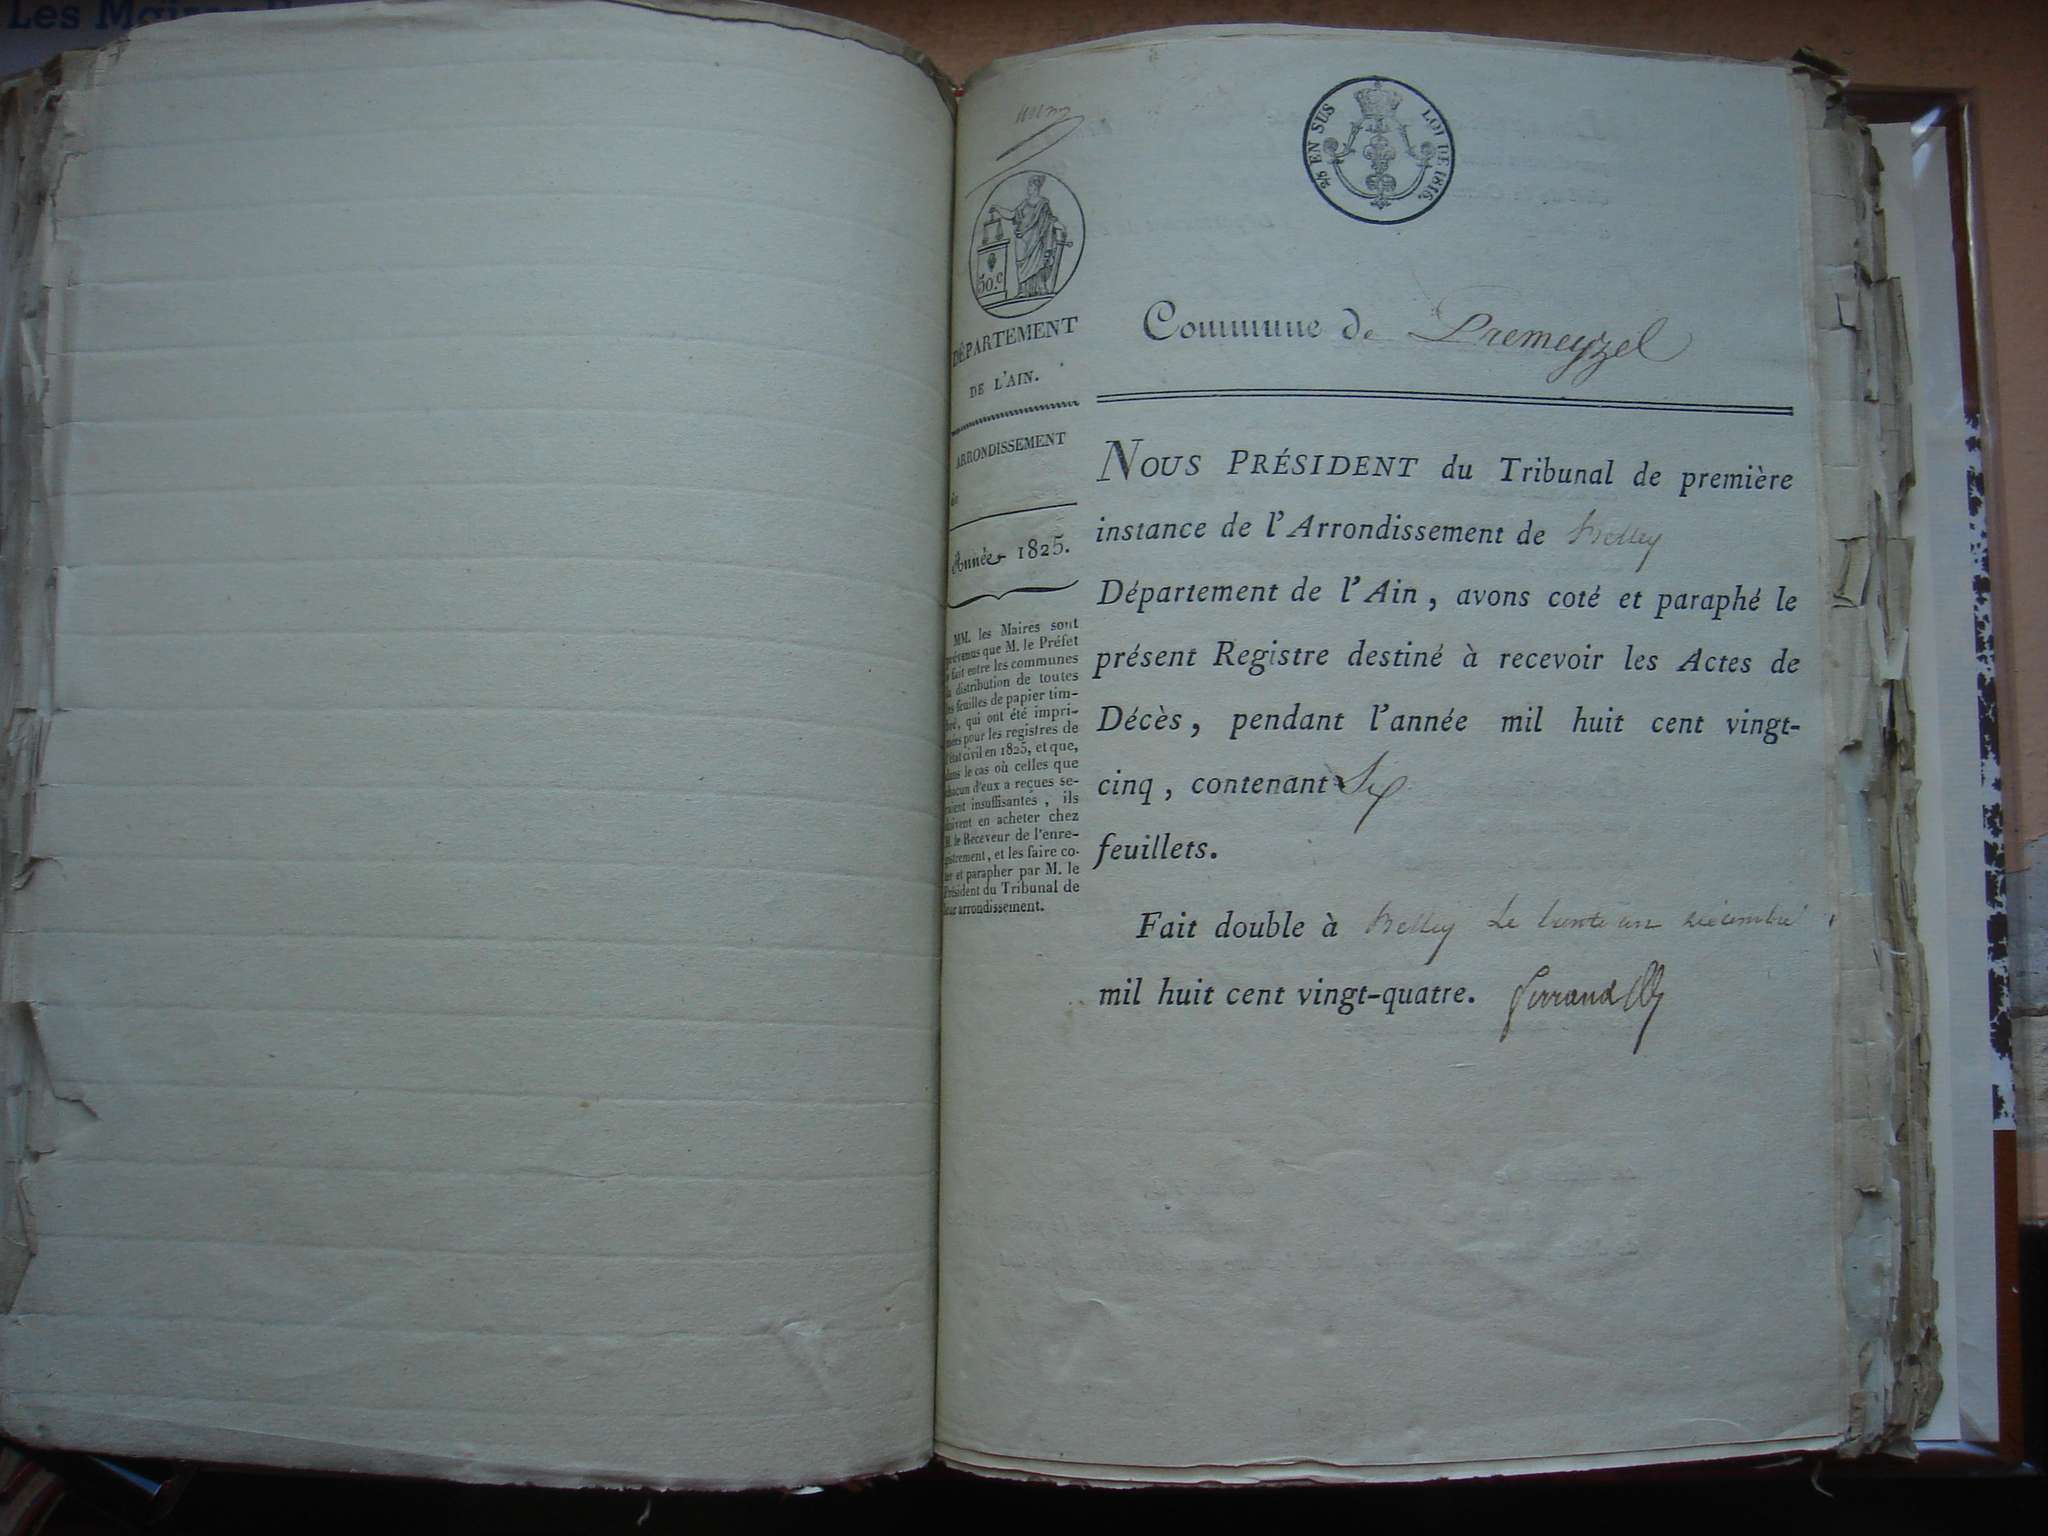 Les Maires
2/5 EN SUS
LOI DE 1816.
50.c
DÉPARTEMENT
DE L'AIN.
ARRONDISSEMENT
de
Année 1825.
MM. les Maires sont
prévenus que M. le Préfet
a fait entre les communes
la distribution de toutes
les feuilles de papier tim-
bré, qui ont été impri-
mées pour les registres de
l'état civil en 1825, et que,
dans le cas où celles que
chacun d'eux a reçues se-
raient insuffisantes, ils
doivent en acheter chez
M. le Receveur de l'enre-
gistrement, et les faire co-
ter et parapher par M. le
Président du Tribunal de
leur arrondissement.
Commune de Premeyzel
NOUS PRÉSIDENT du Tribunal de première
instance de l'Arrondissement de Belley
Département de l'Ain, avons coté et paraphé le
présent Registre destiné à recevoir les Actes de
Décès, pendant l'année mil huit cent vingt-
cinq, contenant Six
feuillets.
Fait double à Belley Le trente un décembre
mil huit cent vingt-quatre. Ferrand